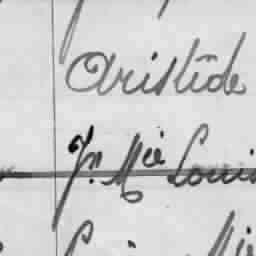 Aristide
Jn. Mie Louis